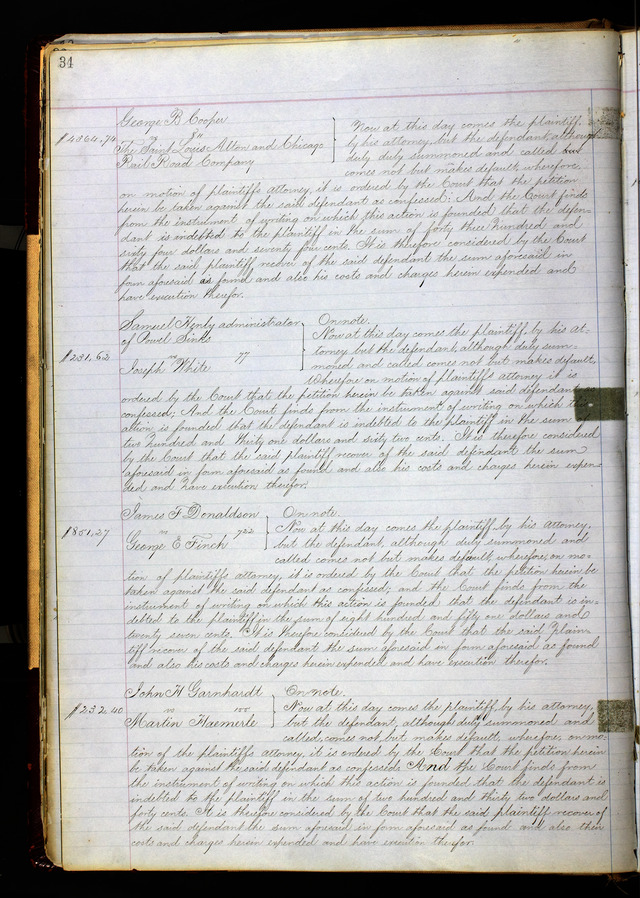 34
George B Cooper
vs
$4364,74 The Saint Louis Alton and Chicago
Rail Road Company
Now at this day comes the plaintiff
by his attorney, but the defendant although
duly duly summoned and called
comes not but makes default, wherefore,
on motion of plaintiffs attorney, it is ordered by the Court that the petition
herein be taken against the said defendant as confessed: And the Court finds
from the instrument of writing on which this action is founded that the defen=
dant is indebted to the plaintiff in the sum of forty three hundred and
sixty four dollars and seventy four cents. It is therefore considered by the Court
that the said plaintiff recover of the said defendant the sum aforesaid in
form aforesaid as found and also his costs and charges herein expended and
have execution therefor.
Samuel Henly administrator
of Powel Sinks
$231,62
vs 77
Joseph White
On note.
Now at this day comes the plaintiff, by his at-
torney but the defendant, although duly sum-
moned and called comes not but makes default,
Wherefore on motion of plaintiffs attorney it is
ordered by the Court that the petition herein be taken against said defendant as
confessed; And the Court finds from the instrument of writing on which this
action is founded that the defendant is indebted to the plaintiff in the sum of
two hundred and thirty one dollars and sixty two cents. It is therefore considered
by the Court that the said plaintiff recover of the said defendant the sum
aforesaid in form aforesaid as found and also his costs and charges herein expen-
ded and have execution therefor.
James F Donaldson
$851,27
vs 722
George E Finch
On note.
Now at this day comes the plaintiff, by his attorney,
but the defendant, although duly summoned and
called comes not but makes default, wherefore, on mo=
tion of plaintiffs attorney, it is ordered by the Court that the petition herein be
taken against the said defendant as confessed; and the Court finds from the
instrument of writing on which this action is founded that the defendant is in=
debted to the plaintiff in the sum of eight hundred and fifty one dollars and
twenty seven cents. It is therefore considered by the Court that the said Plain
tiff recover of the said defendant the sum aforesaid in form aforesaid as found
and also his costs and charges herein expended and have execution therefor.
John H Garnhardt
$232 40
vs
Martin Haemerle
On note.
Now at this day comes the plaintiff, by his attorney,
but the defendant, although duly summoned and
called, comes not but makes default, wherefore, on mo=
tion of the plaintiffs attorney, it is ordered by the Court that the petition herein
be taken against the said defendant as confessed. And the Court finds from
the instrument of writing on which this action is founded, that the defendant is
indebted to the plaintiff in the sum of two hundred and thirty two dollars and
forty cents. It is therefore considered by the Court that the said plaintiff recover of
the said defendant the sum aforesaid in form aforesaid as found and also their
costs and charges herein expended and have execution therefor.